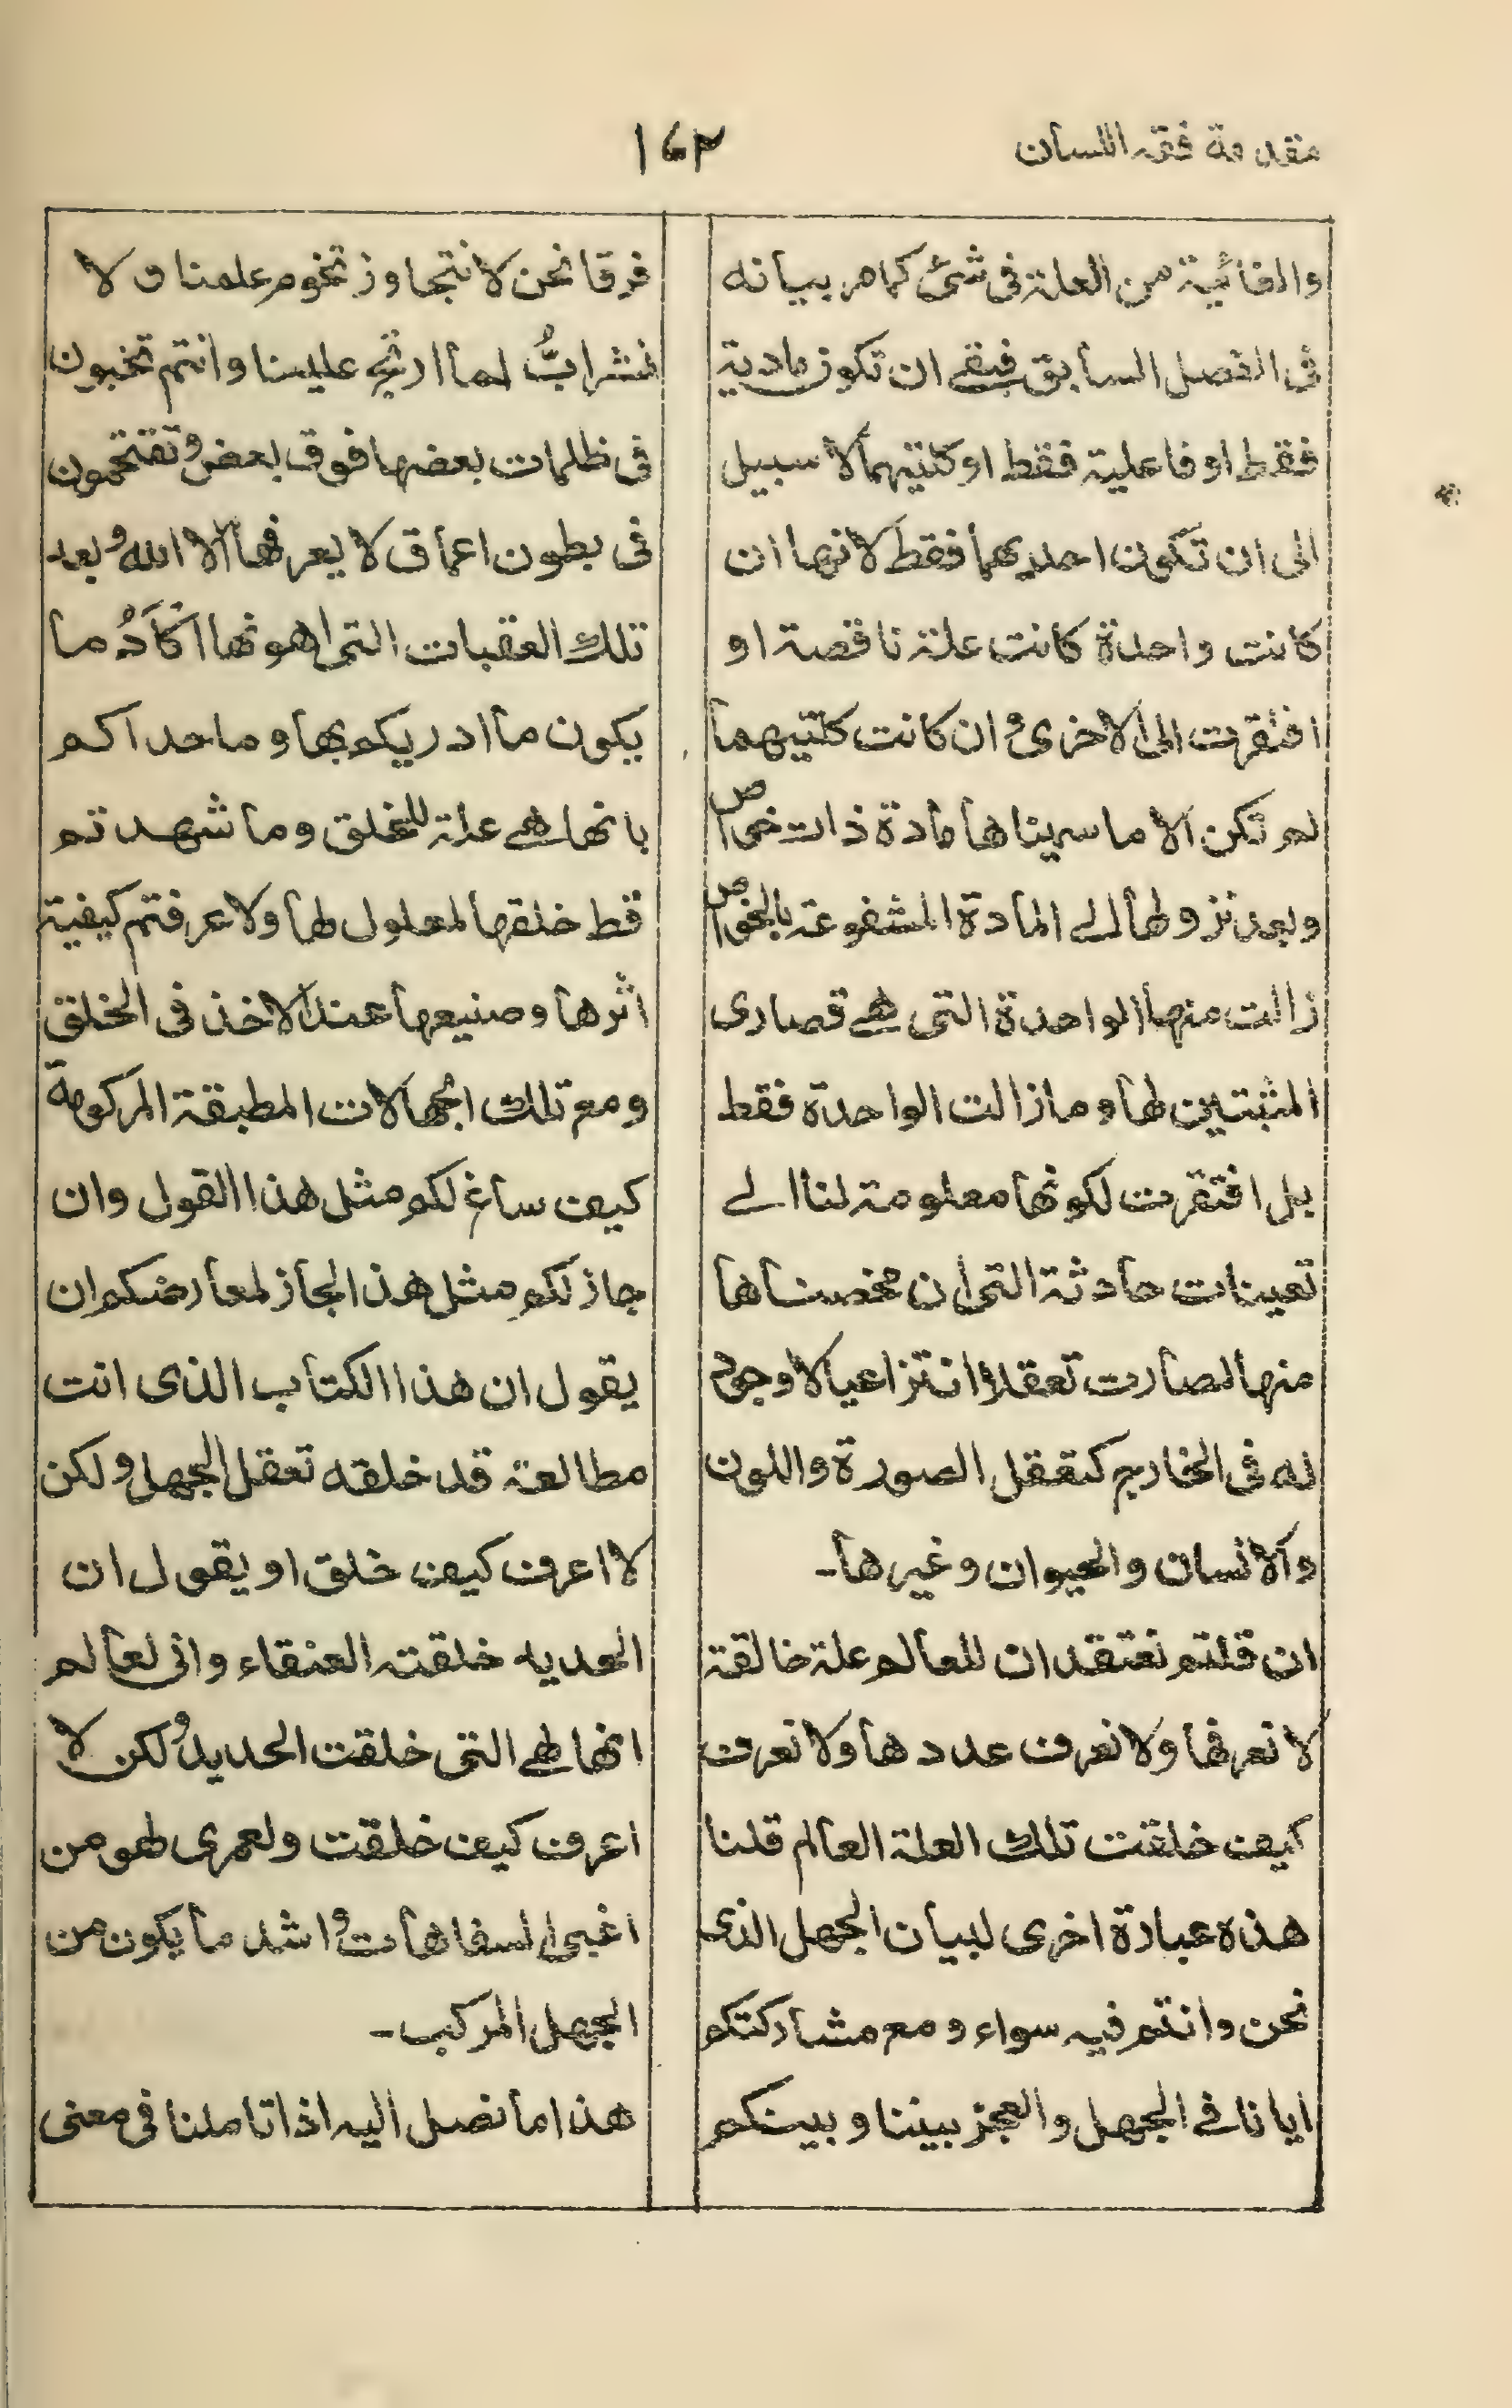 مقدمة فقه اللسان
١٦٢
والغائية من العلة فى شئ كما مر بيانه
فى الفصل السابق فبقے ان تكون مادية
فقط او فاعلية فقط او كلتيهما لا سبيل
الى ان تكون احديهما فقط لانها ان
كانت واحدة كانت علة ناقصة او
افتقرت الى الاخرى و ان كانت كلتيهما
لم تكن الا ما سميناها مادة ذات خواص
وبعد نزولها الے المادة المشفوعة بالخواص
زالت منها الواحدة التى هے قصارى
المثبتين لها وما زالت الواحدة فقط
بل افتقرت لكونها معلومة لنا الے
تعينات حادثة التى ان محصناها
منها لصارت تعقلا انتزاعيا لا وجود
له فى الخارج كتعقل الصورة واللون
والانسان والحيوان وغيرها۔
ان قلتم نعتقد ان للعالم علة خالقة
لا نعرفها ولا نعرف عددها ولا نعرف
كيف خلقت تلك العلة العالم قلنا
هذه عبارة اخرى لبيان الجهل الذى
نحن وانتم فيه سواء ومع مشاركتكم
ايانا فے الجهل والعجز بيننا وبينكم
فرقا نحن لا نتجاوز تخوم علمنا و لا
نشرابُّ لما ارتج علينا وانتم تخبون
فى ظلمات بعضها فوق بعض و تقتحمون
فى بطون اعماق لا يعرفها الا الله و بعد
تلك العقبات التى اهونها اكَادُ ما
يكون ما ادريكم بها وما حداكم
بانها هے علة للخلق وما شهدتم
قط خلقها لمعلول لها ولا عرفتم كيفية
اثرها وصنيعها عند الاخذ فى الخلق
ومع تلك الجهالات المطبقة المركومة
كيف ساغ لكم مثل هذا القول وان
جاز لكم مثل هذا لجاز لمعارضكم ان
يقول ان هذا الكتاب الذى انت
مطالعة قد خلقه تعقل الجهل و لكن
لا اعرف كيف خلق او يقول ان
الحديد خلقته العنقاء وانى لعالم
انها لهے التى خلقت الحديد و لكن لا
اعرف كيف خلقت ولعمرى لهو من
اغبى السفاهات و اشد ما يكون من
الجهل المركب۔
هذا ما نصل اليه اذا تاملنا فى معنى